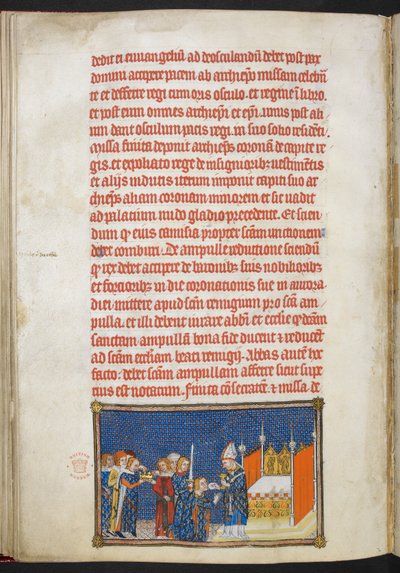 dedit ei euuangeliũ ad deosculandũ debet post pax
domini accipere pacem ab archiep̃o missam celebrã
te et defferre regi cum oris osculo. et regine ĩ libro.
et post eum omnes archiep̃i et ep̃i. vnus post ali
um dant osculum pacis regi. in suo solio residenti.
Missa finita deponit archiep̃s coronã de capite re
gis. et expoliato rege de insignioribȝ uestimẽtis
et alijs indutis iterum imponit capiti suo ar
chiep̃s aliam coronam minorem et sic uadit
ad palacium nudo gladio precedente. Et scien
dum q̃ eius camisia propter sc̃am unctionem
debet comburi. De ampulle reductione sciendũ
q̃ rex debet accipere de baronibȝ suis nobilioribȝ
et forcioribȝ in die coronacionis sue in aurora
diei. mittere apud sc̃m remigium pro sc̃a am
pulla. et illi debent iurare abb̃i et ecclie q̃ dc̃am
sanctam ampullã bona fide ducent et reducẽt
ad sc̃am eccliam beati remigij. Abbas autẽ hoc
facto. debet sc̃am ampullam afferre sicut supe
rius est notatum. Finita cõsecratẽ. et missa. de
BRITISH
MUSEUM